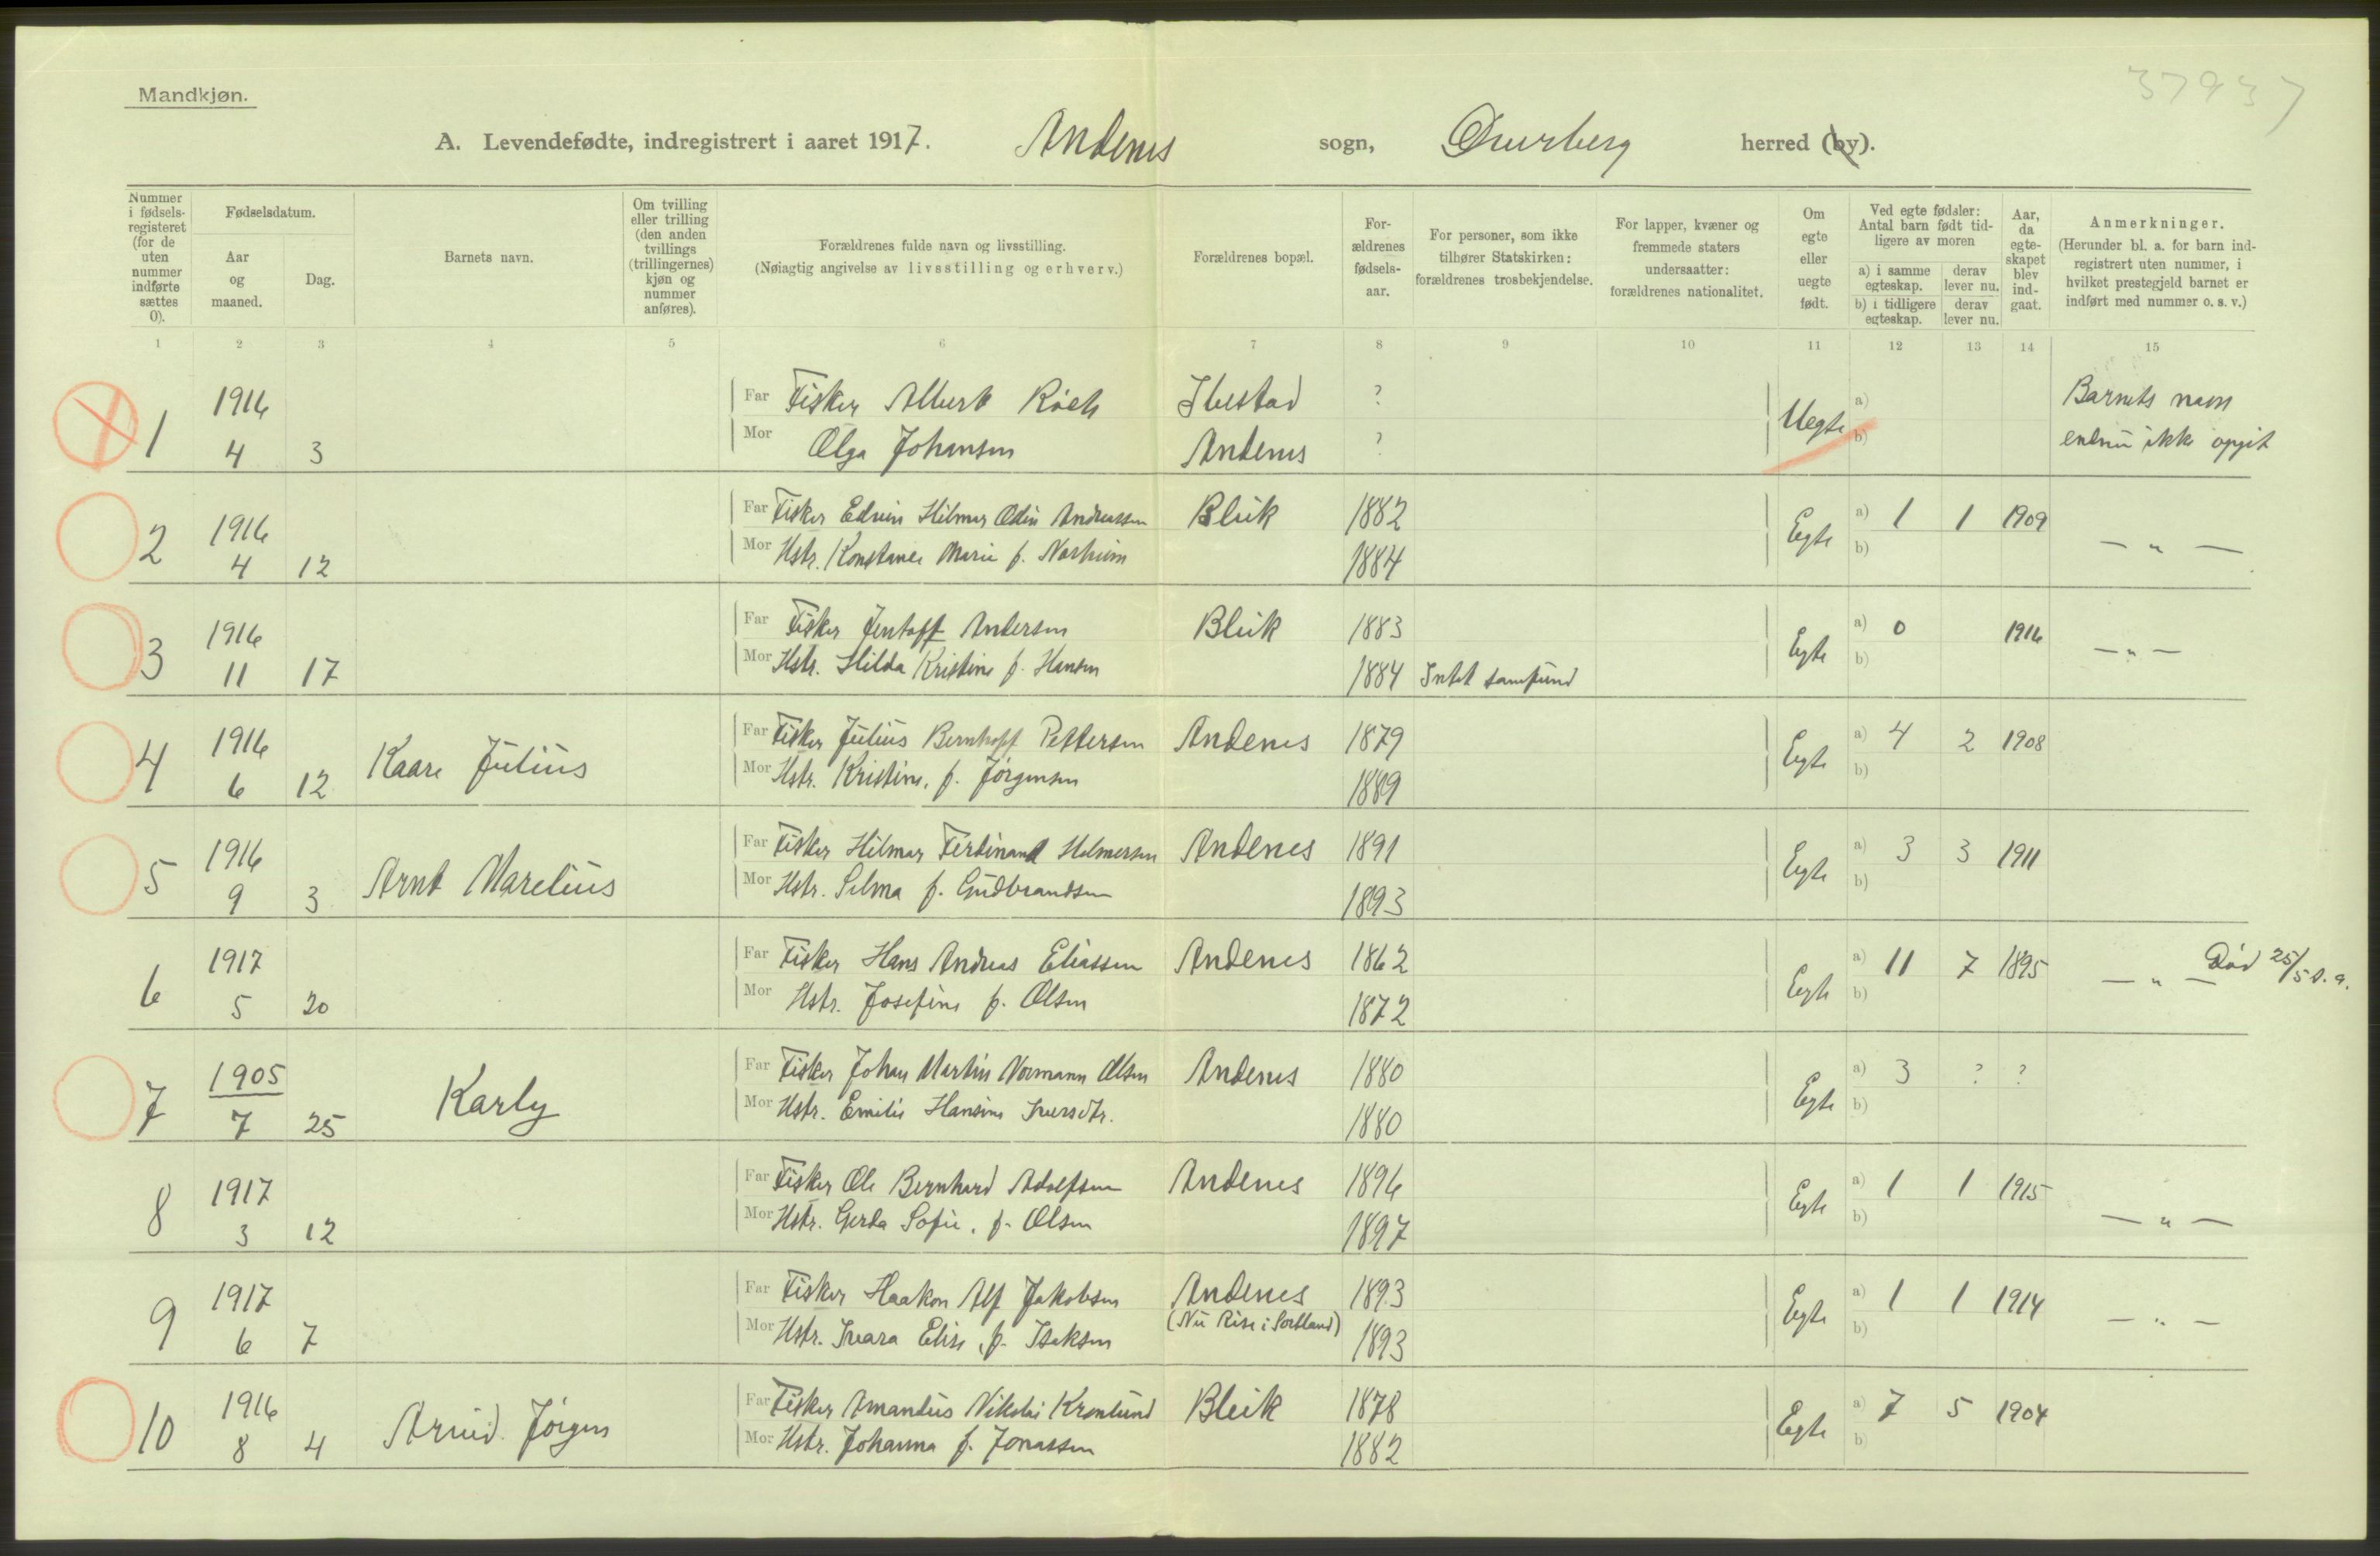 37937
Mandkjøn.
A. Levendefødte, indregistrert i aaret 1917. Andenes sogn, Dverberg herred (by).
Nummer i fødsels-registeret (for de uten nummer indførte sættes 0).
Fødselsdatum.
Aar og maaned.
Dag.
Barnets navn.
Om tvilling eller trilling (den anden tvillings (trillingernes) kjøn og nummer anføres).
Forældrenes fulde navn og livsstilling.
(Nøiagtig angivelse av livsstilling og erhverv.)
Forældrenes bopæl.
For-ældrenes fødsels-aar.
For personer, som ikke tilhører Statskirken: forældrenes trosbekjendelse.
For lapper, kvæner og fremmede staters undersaatter: forældrenes nationalitet.
Om egte eller uegte født.
Ved egte fødsler: Antal barn født tid-ligere av moren
a) i samme egteskap.
derav lever nu.
b) i tidligere egteskap.
derav lever nu.
Aar, da egte-skapet blev ind-gaat.
Anmerkninger.
(Herunder bl. a. for barn ind-registrert uten nummer, i hvilket prestegjeld barnet er indført med nummer o. s. v.)
1 2 3 4 5 6 7 8 9 10 11 12 13 14 15
1 1916 Far Fisker Albert Ibestad ? Uegte a) Barnets navn
4 3 Mor Olga Johansen Andenes ? b) endnu ikke opgit
2 1916 Far Fisker Edvin Hilmar Odin Andreassen Bleik 1882 Egte a) 1 1 1909
4 12 Mor Hstr. Konstance Marie f. 1884 b) — „ —
3 1916 Far Fisker Jentoft Andersen Bleik 1883 Egte a) 0 1916
11 17 Mor Hstr. Hilda Kristine f. Hansen 1884 Intet samfund b) — „ —
4 1916 Kaare Julius Far Fisker Julius Bernhoff Pettersen Andenes 1879 Egte a) 4 2 1908
6 12 Mor Hstr. Kristine, f. Jørgensen 1889 b)
5 1916 Arnt Marelius Far Fisker Hilmar Ferdinand Helmersen Andenes 1891 Egte a) 3 3 1911
9 3 Mor Hstr. Selma f. Gudbrandsen 1893 b)
6 1917 Far Fisker Hans Andreas Eliassen Andenes 1862 Egte a) 11 7 1895 — „ — Død 25/5 s. a.
5 20 Mor Hstr. Josefine f. Olsen 1872 b)
7 1905 Karly Far Fisker Johan Martin Normann Olsen Andenes 1880 Egte a) 3 ? ?
7 25 Mor Hstr. Emilie Hansine Iversdtr. 1880 b)
8 1917 Far Fisker Ole Bernhard Adolfsen Andenes 1896 Egte a) 1 1 1915
3 12 Mor Hstr. Gerda Sofie, f. Olsen 1897 b) — „ —
9 1917 Far Fisker Haakon Alf Jakobsen Andenes 1893 Egte a) 1 1 1914
6 7 Mor Hstr. Ivara Elise, f. Isaksen (Nu Rise i Sortland) 1893 b) — „ —
10 1916 Arvid Jörgen Far Fisker Amandus Nikolai Kronlund Bleik 1878 Egte a) 7 5 1904
8 4 Mor Hstr. Johanna f. Jonassen 1882 b)